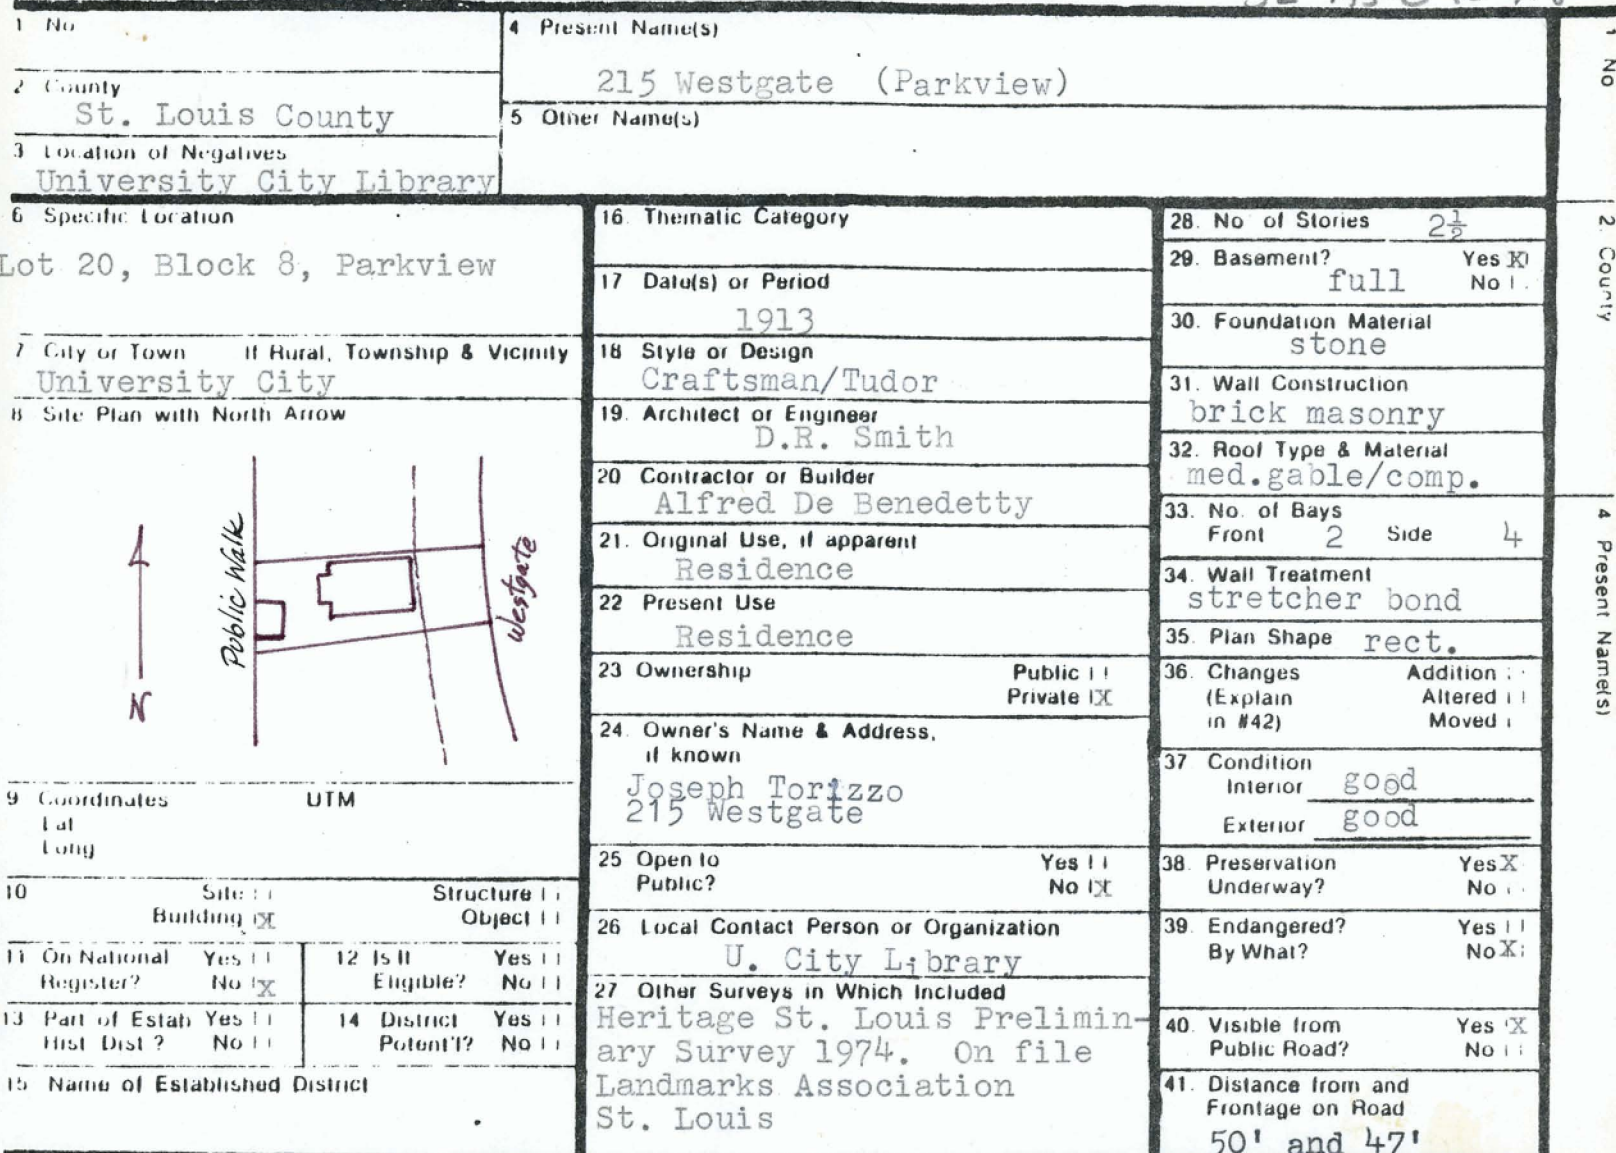 1 No
4 Present Name(s)
215 Westgate (Parkview)
2 County
St. Louis County
5 Other Name(s)
3 Location of Negatives
University City Library
6 Specific Location
Lot 20, Block 8, Parkview
7 City or Town If Rural, Township & Vicinity
University City
8 Site Plan with North Arrow
Public Walk
Westgate
N
9 Coordinates UTM
Lat
Long
10 Site
Structure
Building X
Object
11 On National Register? Yes
No X
12 Is It Eligible? Yes
No
13 Part of Estab Hist Dist? Yes
No
14 District Potent'l? Yes
No
15 Name of Established District
16. Thematic Category
17 Date(s) or Period
1913
18 Style or Design
Craftsman/Tudor
19. Architect or Engineer
D.R. Smith
20 Contractor or Builder
Alfred De Benedetty
21. Original Use, if apparent
Residence
22 Present Use
Residence
23 Ownership Public
Private X
24. Owner's Name & Address,
if known
Joseph Torizzo
215 Westgate
25 Open to Yes
Public? No X
26 Local Contact Person or Organization
U. City Library
27 Other Surveys in Which Included
Heritage St. Louis Prelimin-
ary Survey 1974. On file
Landmarks Association
St. Louis
28. No of Stories 2½
29. Basement? Yes X
full No
30. Foundation Material
stone
31. Wall Construction
brick masonry
32. Roof Type & Material
med.gable/comp.
33. No. of Bays
Front 2 Side 4
34. Wall Treatment
stretcher bond
35. Plan Shape rect.
36. Changes Addition
(Explain Altered
in #42) Moved
37 Condition
Interior good
Exterior good
38. Preservation Yes X
Underway? No
39. Endangered? Yes
By What? No X
40. Visible from Yes X
Public Road? No
41. Distance from and
Frontage on Road
50' and 47'
1 No
2. County
4 Present Name(s)